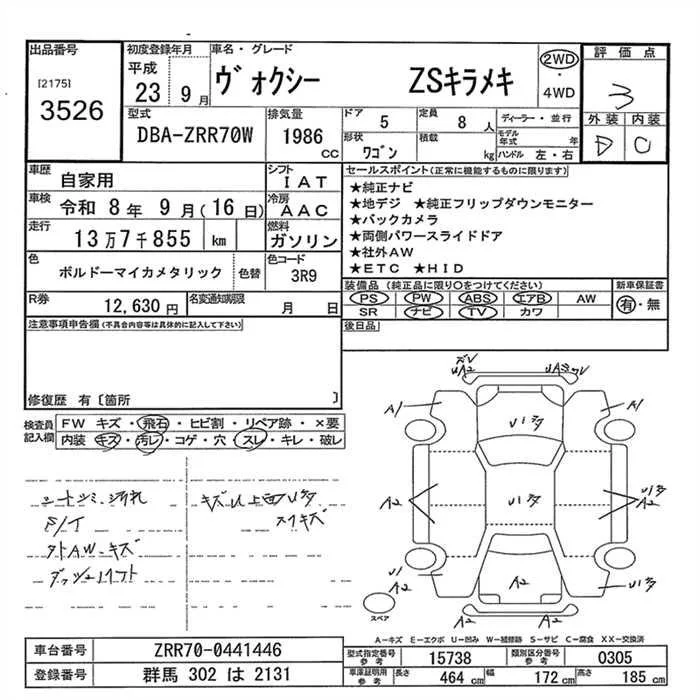 出品番号
[2175]
3526
初度登録年月
平成
23 9 月
車名・グレード
ヴォクシー ZSキラメキ
2WD
・
4WD
評価点
3
外装 内装
D C
型式
DBA-ZRR70W
排気量
1986
CC
ドア 5
定員 8 人
ディーラー・並行
形状 ワゴン
積載 kg
モデル年式 年
ハンドル 左・右
車歴 自家用
シフト IAT
車検 令和 8年 9月(16日)
冷房 AAC
走行 13万7千855 km
燃料 ガソリン
色 ボルドーマイカメタリック 色替
色コード 3R9
R券 12,630円
名変通知期限 月 日
セールスポイント(正常に機能するものに限ります)
★純正ナビ
★地デジ ★純正フリップダウンモニター
★バックカメラ
★両側パワースライドドア
★社外AW
★ETC ★HID
装備品(純正品に限り○をつけてください)
PS PW ABS エアB AW
SR ナビ TV カワ
新車保証書
有・無
後日品
注意事項申告欄(不具合内容等は具体的に記入して下さい)
修復歴 有〔箇所 〕
検査員記入欄
FW キズ・飛石・ヒビ割・リペア跡・×要
内装 キズ・汚レ・コゲ・穴・スレ・キレ・破レ
シートシミ、汚れ
外AW キズ
キズU上面U多
スリキズ
UA2
A1
A1
U1多
A2
U1多
A2
U1多
A2
U1
A2
A2
U1多
A2
スペア
A-キズ E-エクボ U-凹み W-補修跡 S-サビ C-腐食 XX-交換済
車台番号 ZRR70-0441446
登録番号 群馬 302 は 2131
型式指定番号 参考 15738
類別区分番号 参考 0305
車庫証明用 参考 長さ 464 cm 幅 172 cm 高さ 185 cm